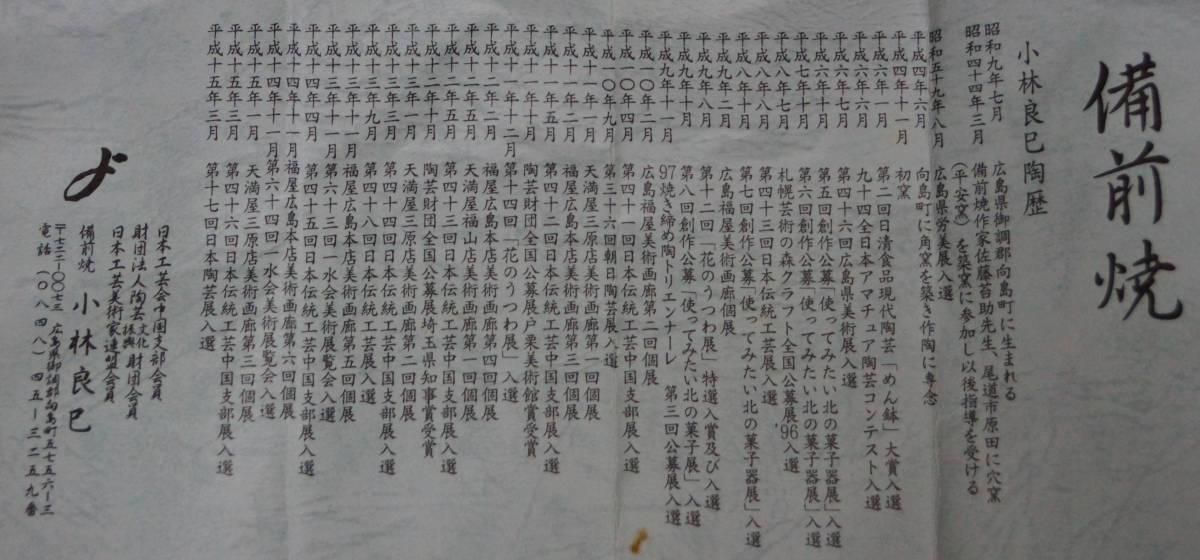 備前焼
小林良巳陶歴
昭和九年七月 広島県御調郡向島町に生まれる
昭和四十四年三月 備前焼作家佐藤苔助先生、尾道市原田に穴窯
(平安窯)を築窯に参加し以後指導を受ける
昭和五十九年八月 広島県労美展入選
平成四年六月 向島町に角窯を築き作陶に専念
平成四年十一月 初窯
平成六年一月 第二回日清食品現代陶芸「めん鉢」大賞入選
平成六年六月 九十四全日本アマチュア陶芸コンテスト入選
平成六年七月 第四十六回広島県美術展入選
平成六年十月 第五回創作公募「使ってみたい北の菓子器展」入選
平成七年十月 第六回創作公募「使ってみたい北の菓子器展」入選
平成八年七月 札幌芸術の森クラフト全国公募展'96入選
平成八年八月 第四十三回日本伝統工芸展入選
平成八年十月 第七回創作公募「使ってみたい北の菓子器展」入選
平成九年二月 広島福屋美術画廊個展
平成九年八月 第十二回「花のうつわ展」特選入賞及び入選
平成九年十月 第八回創作公募「使ってみたい北の菓子展」入選
平成九年十一月 97焼き締め陶トリエンナーレ 第三回公募展入選
平成一〇年二月 広島福屋美術画廊第二回個展
平成一〇年四月 第四十一回日本伝統工芸中国支部展入選
平成一〇年九月 第三十六回朝日陶芸展入選
平成十一年一月 天満屋三原店美術画廊第一回個展
平成十一年二月 福屋広島本店美術画廊第三回個展
平成十一年五月 第四十二回日本伝統工芸中国支部展入選
平成十一年十月 陶芸財団全国公募展戸栗美術館賞受賞
平成十一年十二月 第十四回「花のうつわ展」入選
平成十二年二月 福屋広島本店美術画廊第四回個展
平成十二年五月 天満屋福山店美術画廊第一回個展
平成十二年五月 第四十三回日本伝統工芸中国支部展入選
平成十二年十月 陶芸財団全国公募展埼玉県知事賞受賞
平成十三年一月 天満屋三原店美術画廊第二回個展
平成十三年三月 第四十四回日本伝統工芸中国支部展入選
平成十三年九月 第四十八回日本伝統工芸展入選
平成十三年十一月 福屋広島本店美術画廊第五回個展
平成十三年十一月 第六十三回一水会美術展覧会入選
平成十四年四月 第四十五回日本伝統工芸中国支部展入選
平成十四年十一月 福屋広島本店美術画廊第六回個展
平成十四年十一月 第六十四回一水会美術展覧会入選
平成十五年一月 天満屋三原店美術画廊第三回個展
平成十五年三月 第四十六回日本伝統工芸中国支部展入選
平成十五年三月 第十七回日本陶芸展入選
日本工芸会中国支部会員
財団法人陶芸文化振興財団会員
日本工芸美術家連盟会員
備前焼 小林良巳
〒七二二-〇〇七三 広島県御調郡向島町五七五六-三
電話(〇八四八)四五-三二五九番